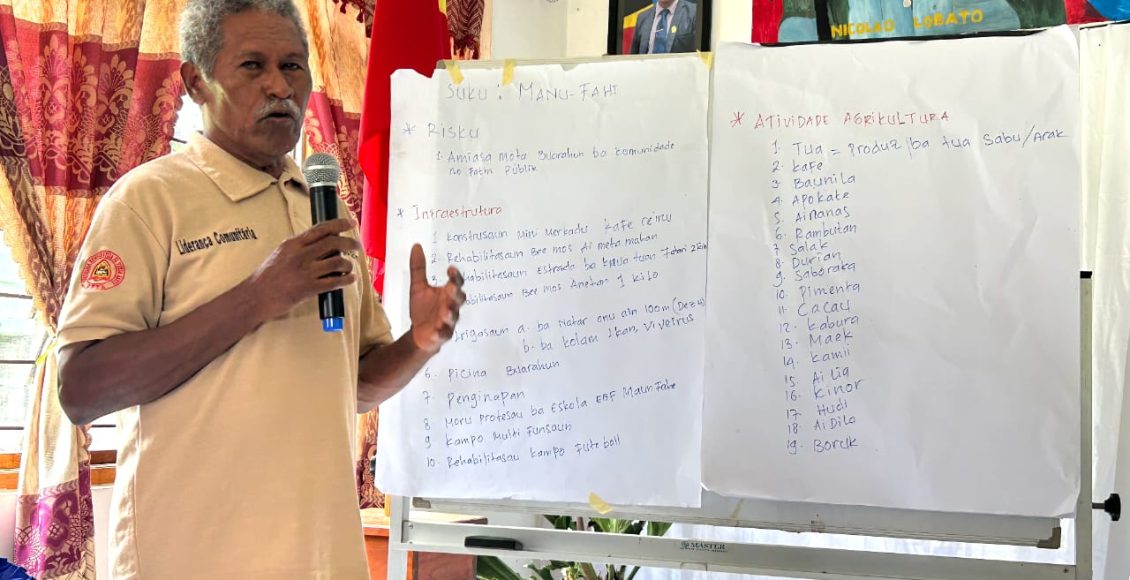 NICOLAO LOBATO
Liderança Comunitária
SUKU : MANU-FAHI
* Risku
1. Amiasa mota Buarahun ba komunidade
no Fatin Publik
* Infraestrutura
1 Konstrusaun Mini Merkadu Kafe
2. Rehabilitasaun Bee mos Ai meta mahan
Rehabilitasaun Estrada ba
Bee mos 1 kilo
Irigasaun a. ba Natar 100m
b. ba kolam Ikan, Viveirus
6. Picina Buarahun
7. Penginapan
8 Moru Protesau ba Eskola EBF
9 Kampo Multi Funsaun
10. Rehabilitasau Kampo Futeboll
* ATIVIDADE AGRIKULTURA
1. Tua = Produz ba tua Sabu/Arak
2. Kafe
3. Baunila
4. Apokate
5. Ainanas
6. Rambutan
7 Salak
8. Durian
9. Saboraka
10. Pimenta
11. Cacau
12. Kabura
13. Maek
14. Kamii
15. Ai lia
16. Kinor
17. Hudi
18. Ai Dila
19. Boruk
MASTER